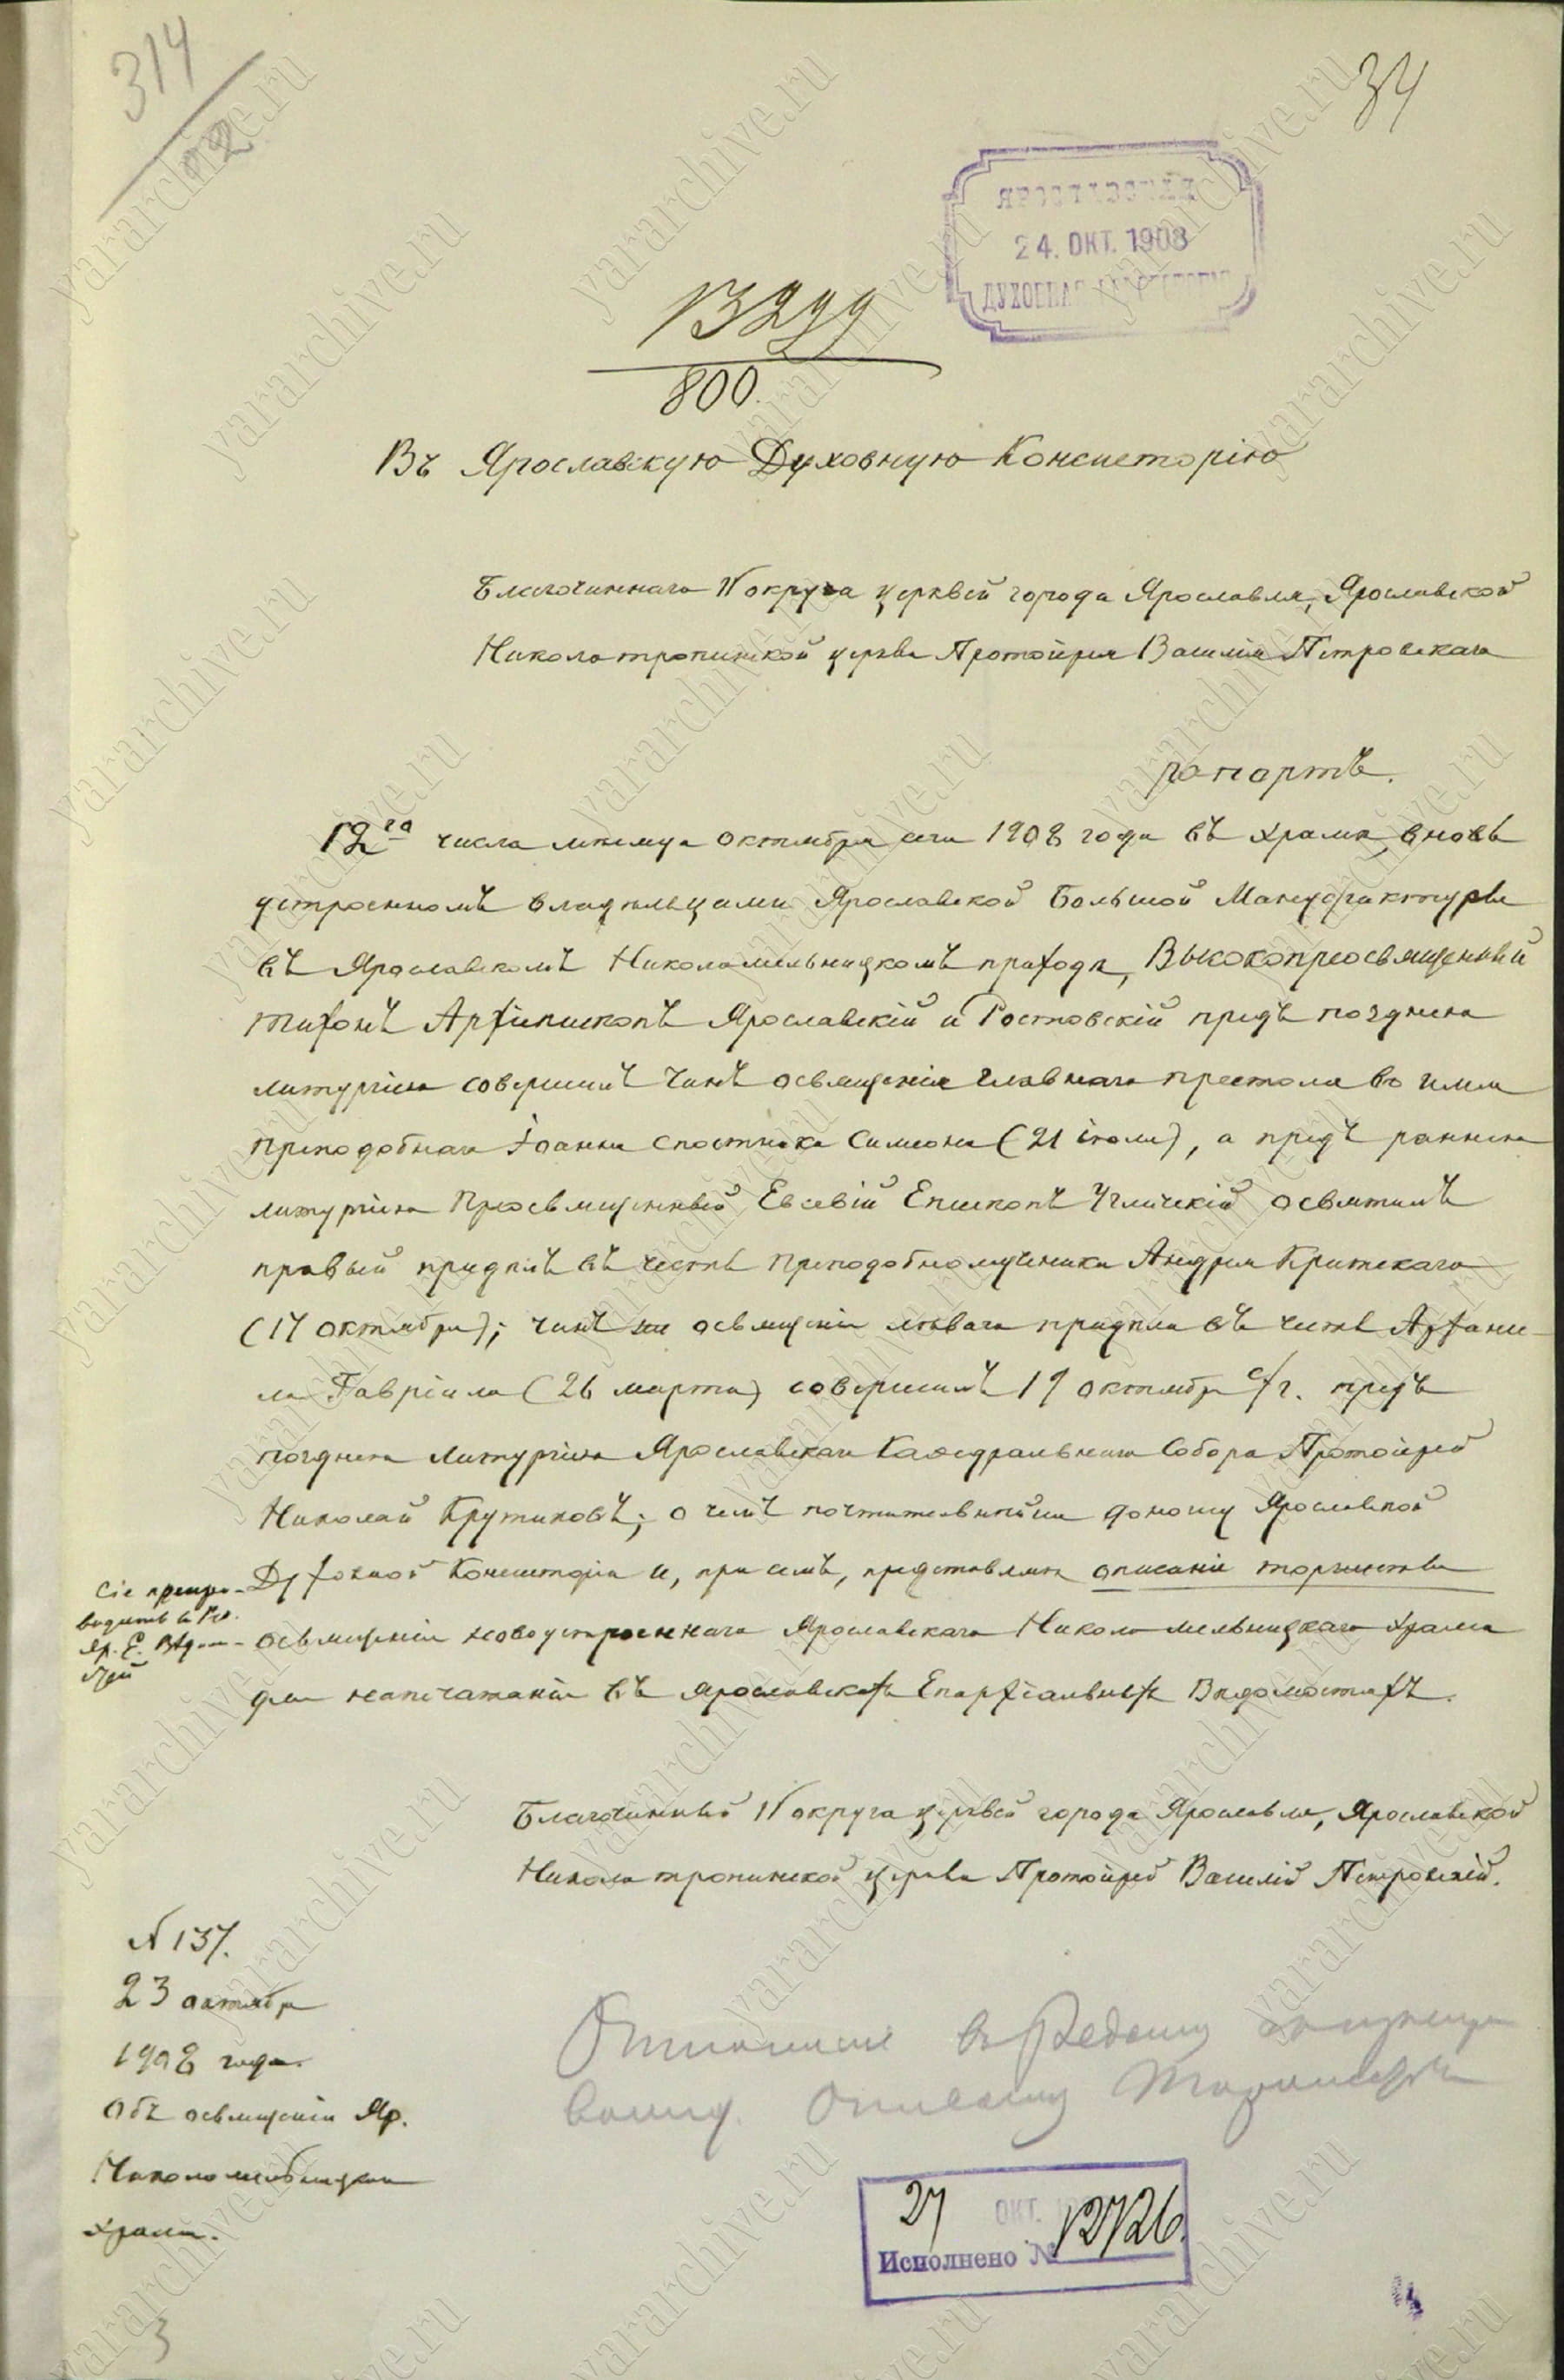 314
34
ЯРОСЛАВСКАЯ
24. ОКТ. 1908
ДУХОВНАЯ КОНСИСТОРІЯ
13299
800.
Въ Ярославскую Духовную Консисторію
Благочиннаго II округа церквей города Ярославля, Ярославской
Николотропинской церкви Протоіерея Василія Петровскаго
рапортъ.
12го числа мѣсяца октября сего 1908 года въ храмѣ, вновь
устроенномъ владѣльцами Ярославской Большой Мануфактуры
въ Ярославскомъ Николомельницкомъ приходѣ, Высокопреосвященный
Тихонъ Архіепископъ Ярославскій и Ростовскій предъ позднею
литургіею совершилъ чинъ освященія главнаго престола во имя
преподобнаго Іоанна спостника Симеона (21 іюля), а предъ раннею
литургіею Преосвященный Евсевій Епископъ Угличскій освятилъ
правый придѣлъ въ честь преподобномученика Андрея Критскаго
(17 октября); чинъ же освященія лѣваго придѣла въ честь Архани-
ла Гавріила (26 марта) совершилъ 19 октября с/г. предъ
позднею литургіею Ярославскаго Каѳедральнаго Собора Протоіерей
Николай Крутиковъ; о чемъ почтительнѣйше доношу Ярославской
Духовной Консисторіи и, при семъ, представляю описаніе торжества
освященія новоустроеннаго Ярославскаго Николомельницкаго храма
для напечатанія въ Ярославскихъ Епархіальныхъ Вѣдомостяхъ.
Сіе препро-
водить въ Ред.
Яр. Е. Вѣдом-
Благочинный II округа церквей города Ярославля, Ярославской
Николотропинской церкви Протоіерей Василій Петровскій.
№ 137.
23 октября
1908 года.
Объ освященіи Яр.
Николомельницкаго
храма.
27 ОКТ.
Исполнено № 12726.
3
yararchive.ru